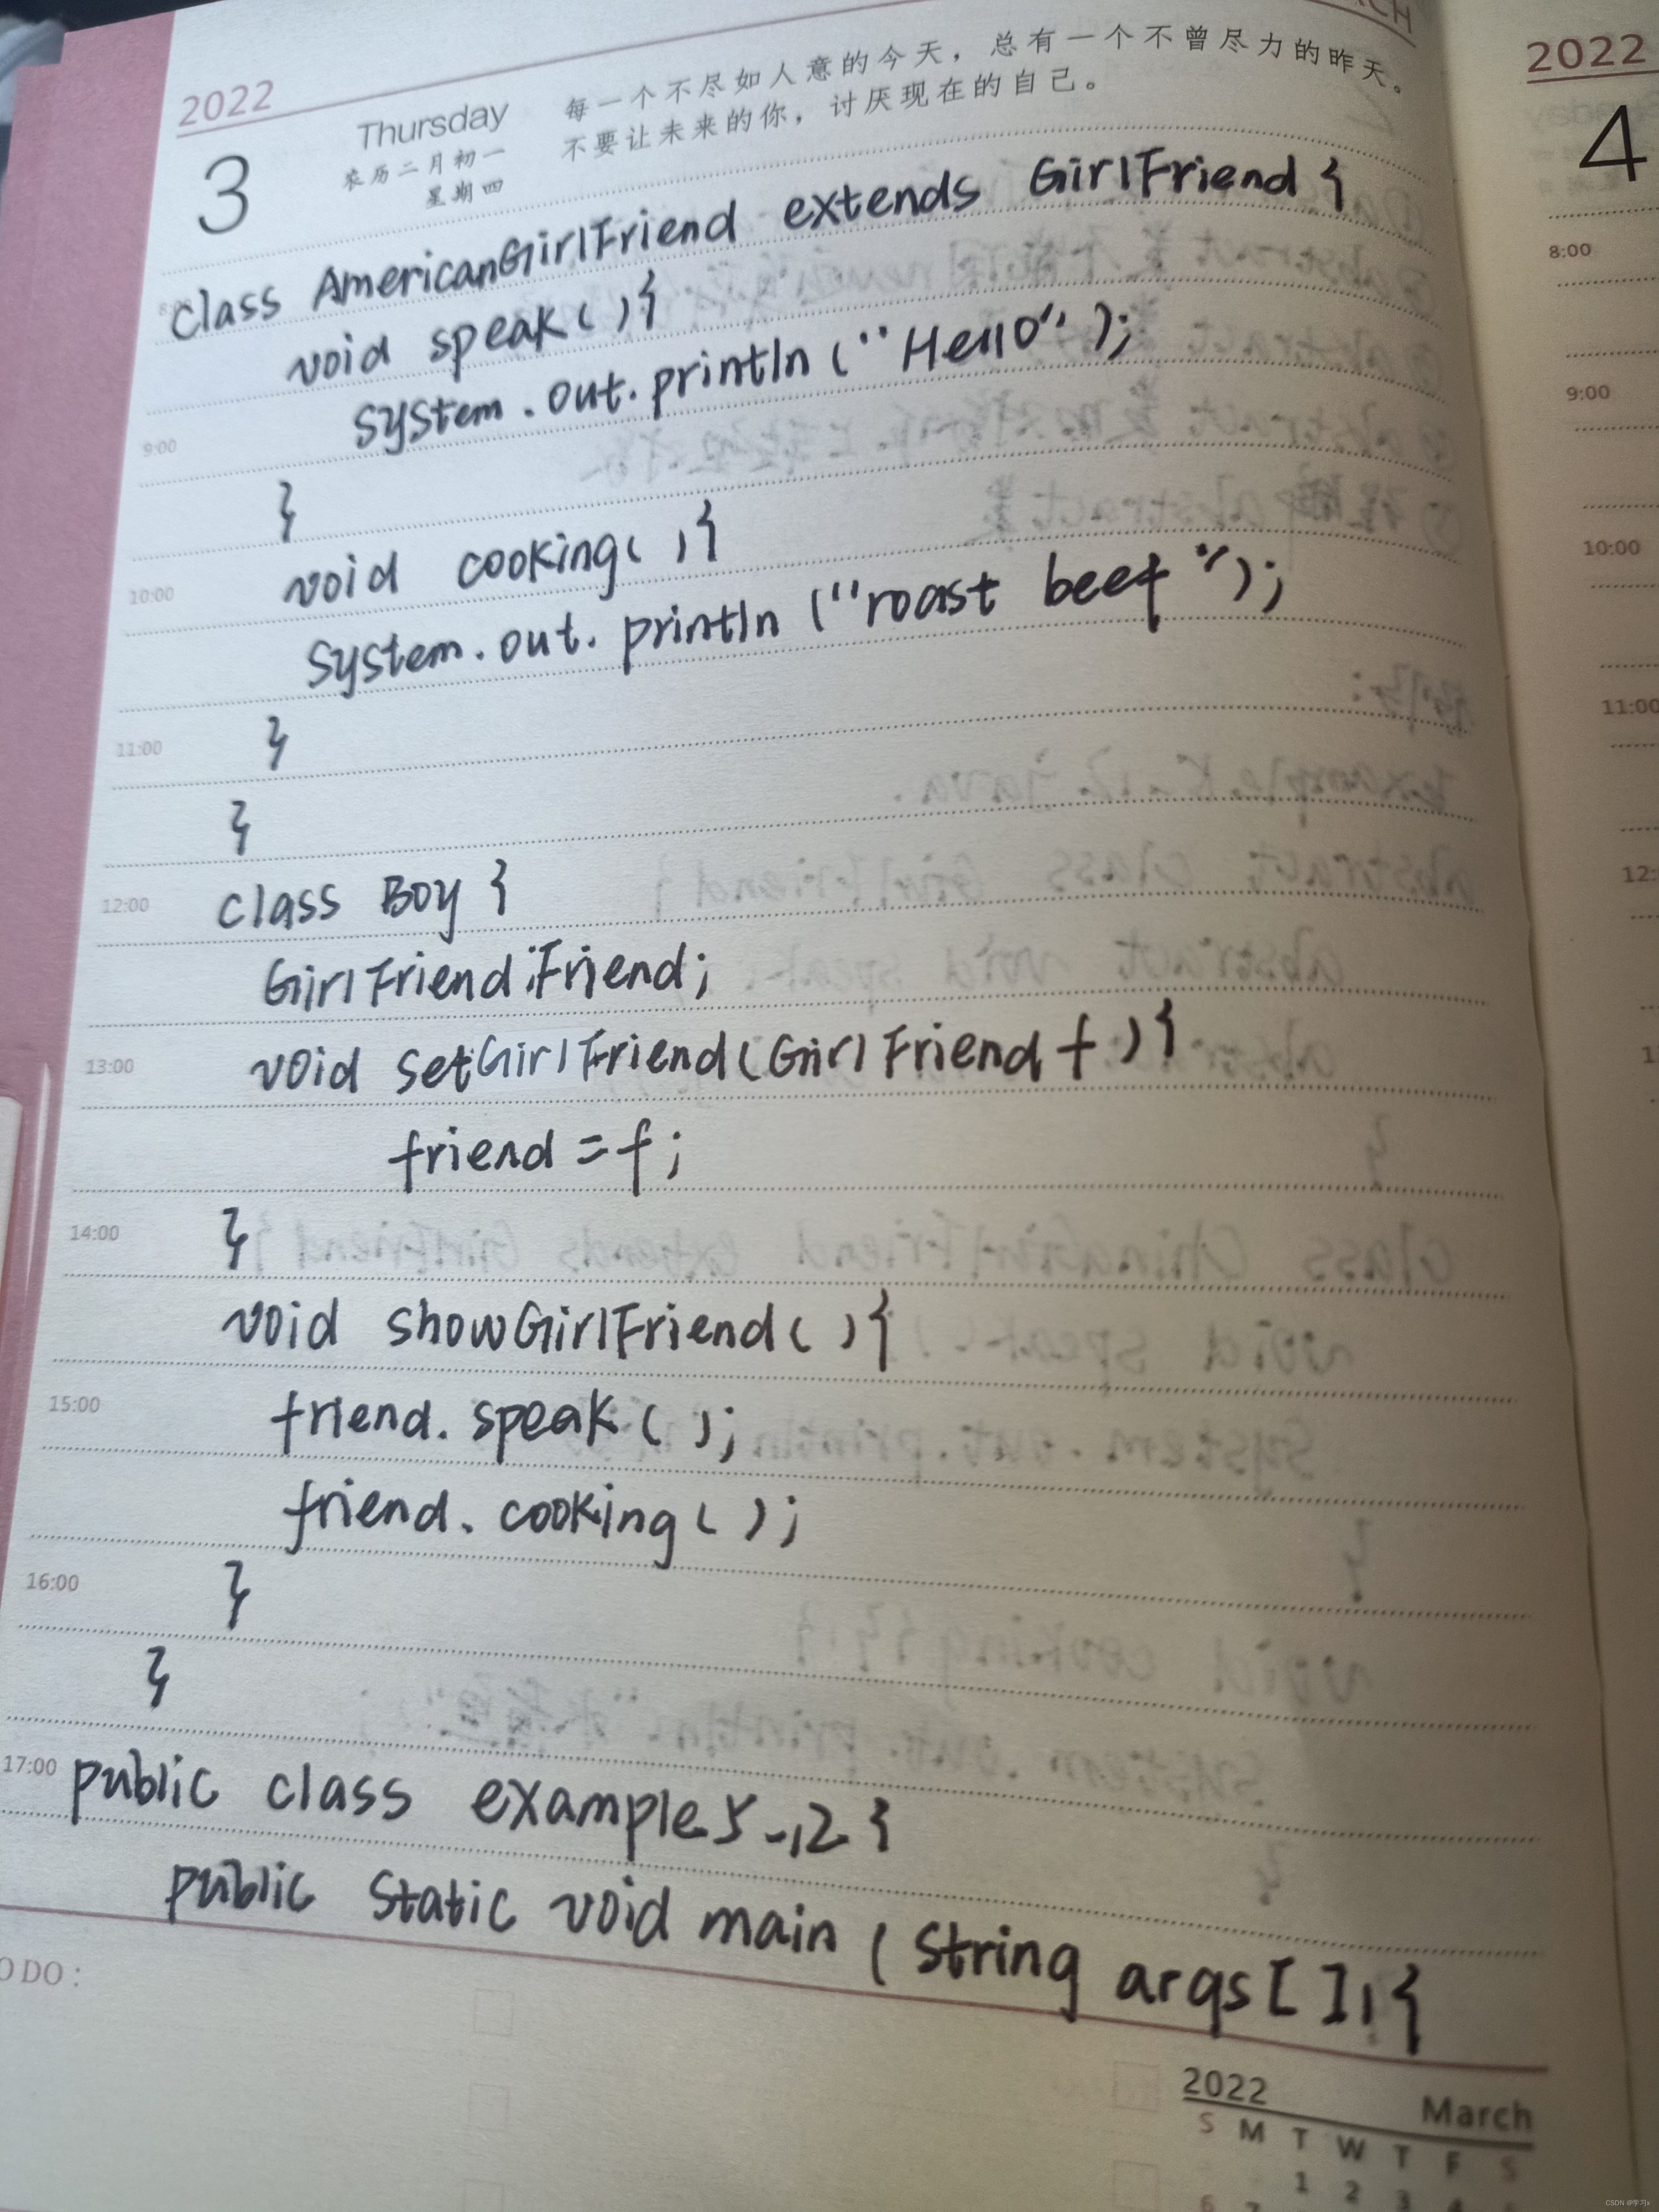 2022
3
Thursday
农历二月初一
星期四
每一个不尽如人意的今天，总有一个不曾尽力的昨天。
不要让未来的你，讨厌现在的自己。
class AmericanGirlFriend extends GirlFriend {
void speak( ){
System.out.println ("Hello");
9:00
}
void cooking( ){
10:00
System.out.println ("roast beef");
11:00
}
}
12:00
class Boy {
GirlFriend Friend;
13:00
void setGirlFriend(GirlFriend f){
friend = f;
14:00
}
void showGirlFriend( ){
15:00
friend.speak( );
friend.cooking( );
16:00
}
}
17:00
public class example5_12 {
public static void main (String args[ ]){
O DO :
2022 March
S M T W T F S
1 2 3 4
2022
4
8:00
9:00
10:00
11:00
12:
CSDN @学习x